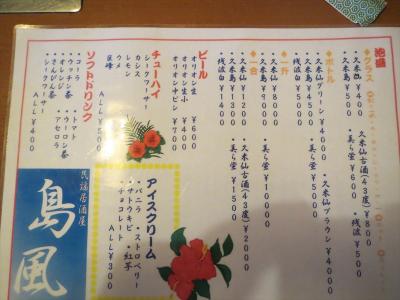 泡盛
◆グラス
・久米仙 ¥400 ・久米仙古酒(43度) ¥800
・久米島 ¥500 ・美ら蛍 ¥600 ・残波 ¥500
◆ボトル
・久米仙グリーン ¥4000 ・久米仙ブラウン ¥4000
・久米島 ¥4500 ・美ら蛍 ¥5000
・残波白 ¥5000
◆一升
・久米仙 ¥8000
・久米島 ¥9000 ・美ら蛍 ¥10000
◆一合
・久米仙 ¥1200 ・久米仙古酒(43度) ¥2000
・久米島 ¥1300 ・美ら蛍 ¥1500
・残波白 ¥1500
ビール
オリオン生 ¥600
オリオン生小 ¥400
オリオン中ビン ¥700
チューハイ
シークワーサー
カシス
レモン
ウメ
巨峰
ALL ¥400
ソフトドリンク
・コーラ ・トマト
・ウッチン茶 ・ウーロン茶
・オレンジ ・アセロラ
・さんぴん茶
・シークワーサー
ALL ¥400
アイスクリーム
・バニラ ・ストロベリー
・サトウキビ ・紅芋
・チョコレート
ALL ¥300
民謡居酒屋
島風